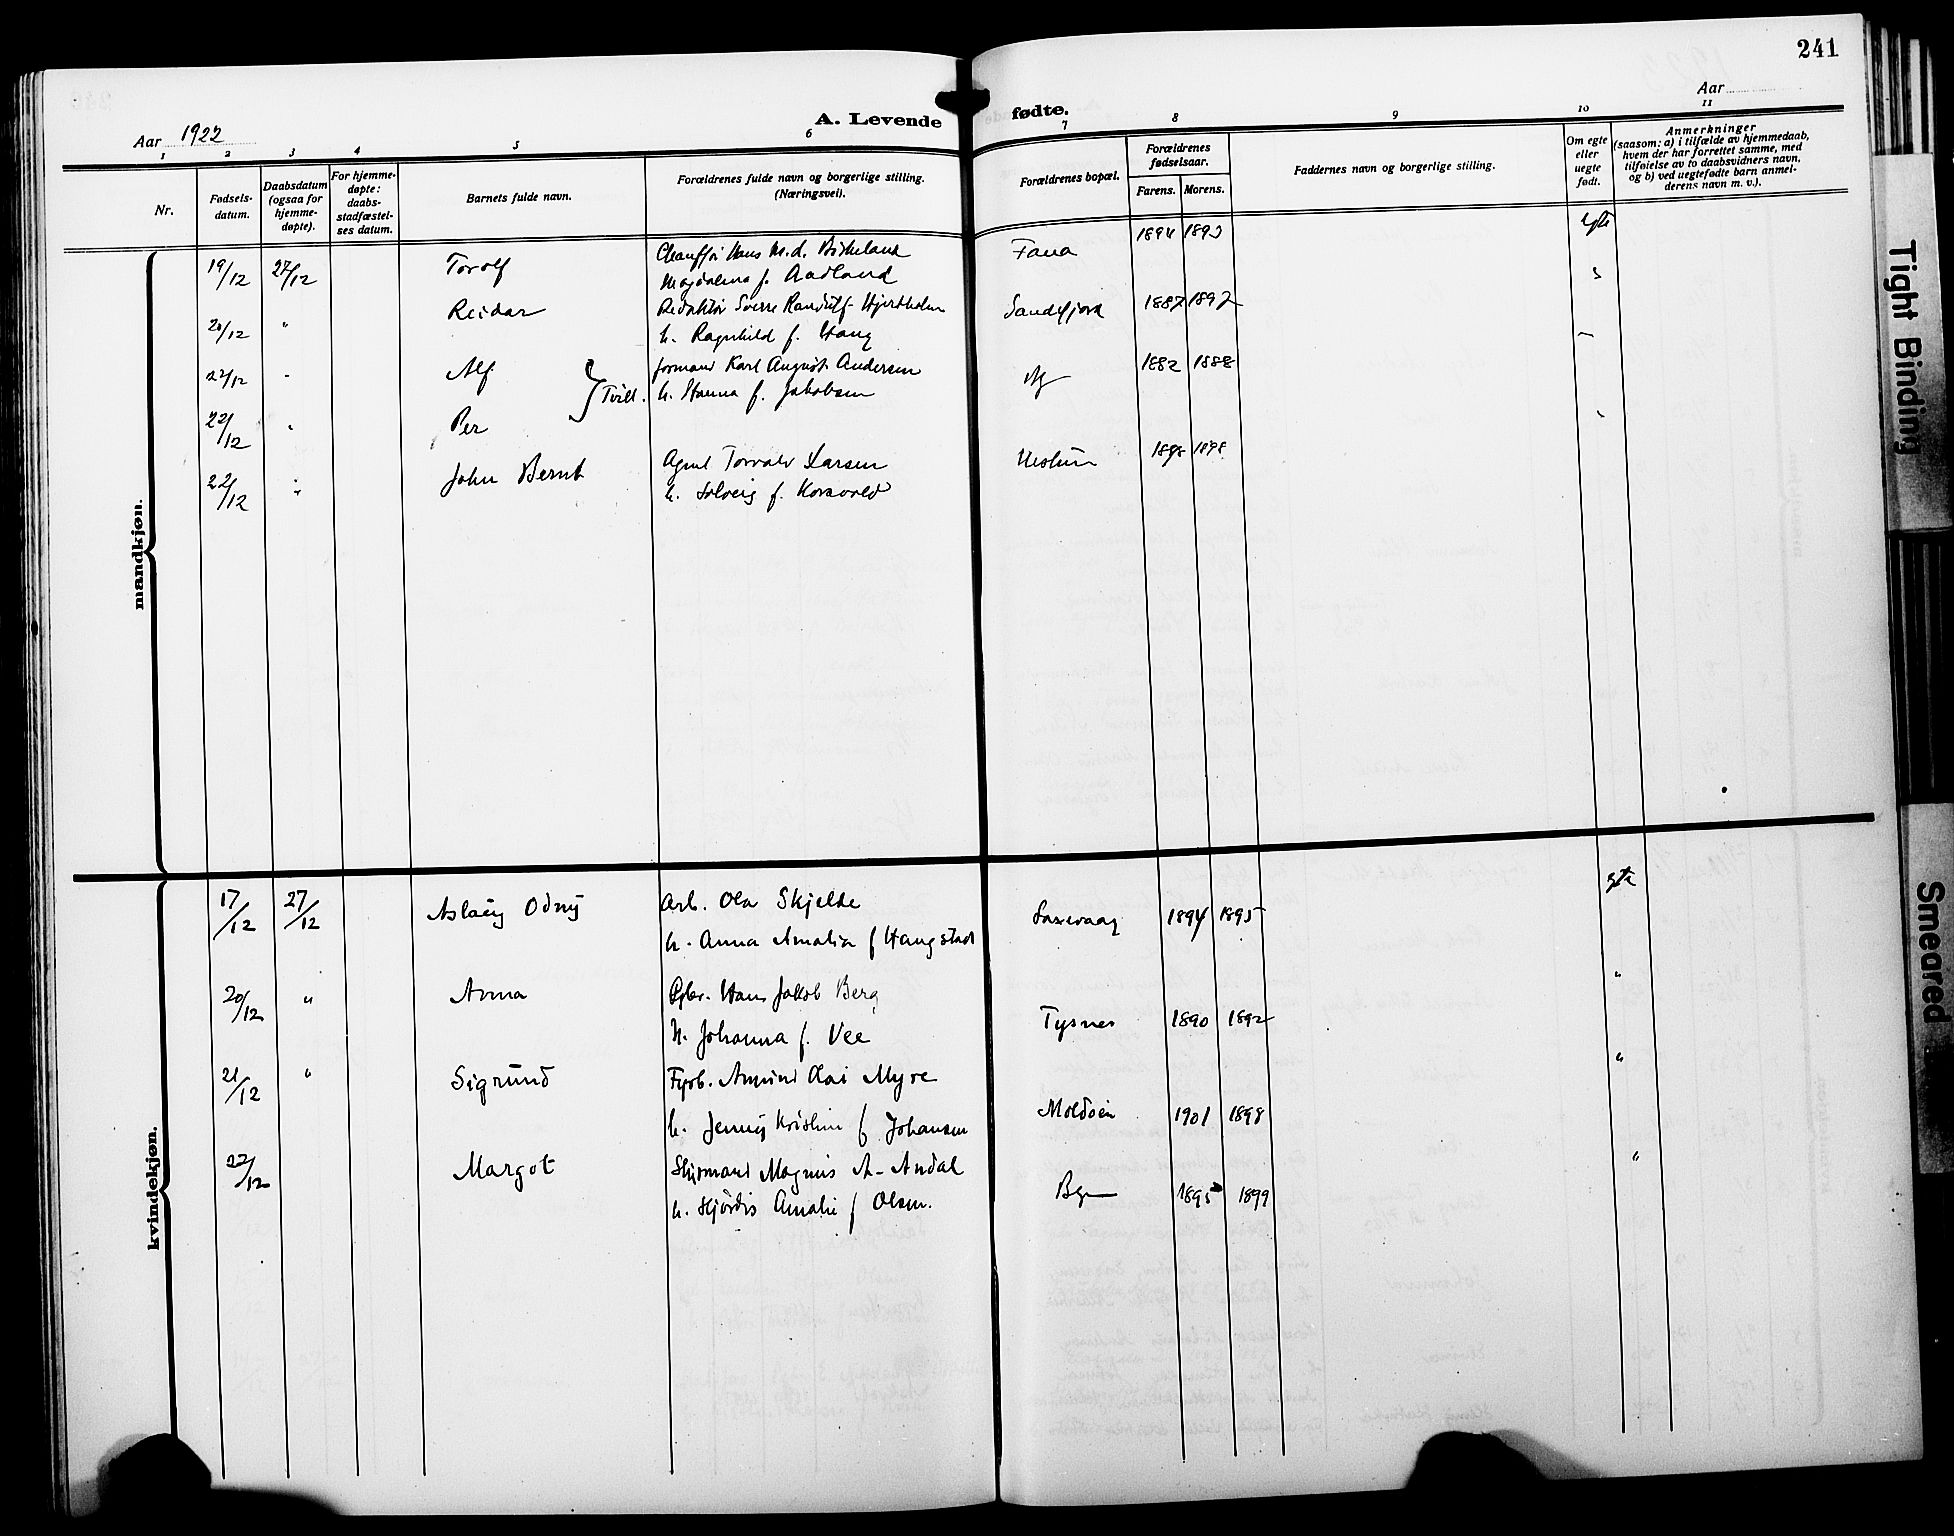 241
Aar 1922
A. Levende
fødte.
Aar
1 2 3 4 5 6 7 8 9 10 11
Nr.
Fødsels-
datum.
Daabsdatum
(ogsaa for
hjemme-
døpte).
For hjemme-
døpte:
daabs-
stadfæstel-
ses datum.
Barnets fulde navn.
Forældrenes fulde navn og borgerlige stilling.
(Næringsvei).
Forældrenes bopæl.
Forældrenes
fødselsaar.
Farens. Morens.
Faddernes navn og borgerlige stilling.
Om egte
eller
uegte
født.
Anmerkninger
(saasom: a) i tilfælde av hjemmedaab,
hvem der har forrettet samme, med
tilføielse av to daabsvidners navn,
og b) ved uegtefødte barn anmel-
derens navn m. v.).
mandkjøn.
19/12 27/12 Torolf Chauffør Hans M.d. Birkeland Fana 1894 1893 egte
Magdalena f. Aadland
20/12 " Reidar Redaktør Sverre Randulf Hjertholm Sandefjord 1887 1892
h. Ragnhild f. Haug
22/12 " Alf } Tvill. formand Karl August Andersen 1882 1888
h. Hanna f. Jakobsen
22/12 " Per
22/12 " John Bernt Agent Torvald Larsen 1898 1898
h. Solveig f. Korsvold
kvindekjøn.
17/12 27/12 Aslaug Odny Arb. Ola Skjelde 1894 1895 egte
h. Anna Amalia f Haugstad
20/12 " Anna Gbr. Hans Jakob Berg Tysnes 1890 1892 "
h. Johanna f. Vee
21/12 " Sigrund Fyrb. Amund Olai Myre Moldøen 1901 1898 "
h. Jenny Kristine f Johansen
22/12 Margot Styrmand Magnus A. Andal Bgn 1895 1899 "
h. Hjørdis Amalie f Olsen.
Tight Binding
Smeared